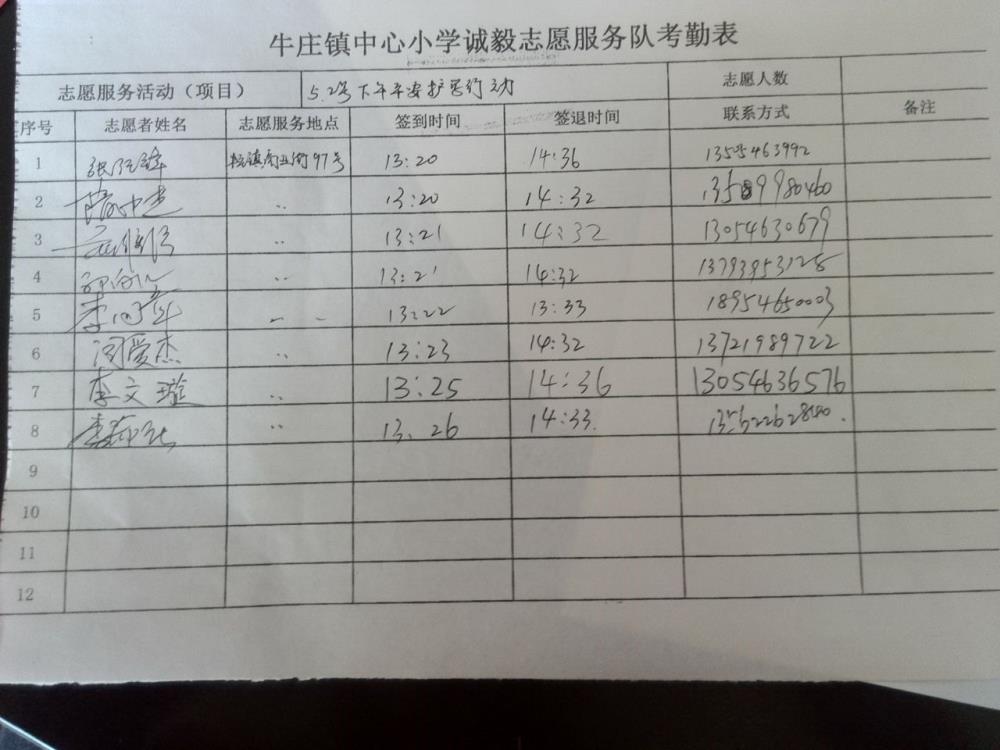 牛庄镇中心小学诚毅志愿服务队考勤表
志愿服务活动（项目） 5.2号下午平安护学行动 志愿人数
序号 志愿者姓名 志愿服务地点 签到时间 签退时间 联系方式 备注
1 街97号 13:20 14:36 13505463992
2 〃 13:20 14:32 13589980460
3 〃 13:21 14:32 13054630679
4 〃 13:21 14:32 13793953128
5 〃 13:22 13:33 18954650003
6 闵爱杰 〃 13:23 14:32 13721989722
7 李文璇 〃 13:25 14:36 13054636576
8 〃 13.26 14:33.
9
10
11
12